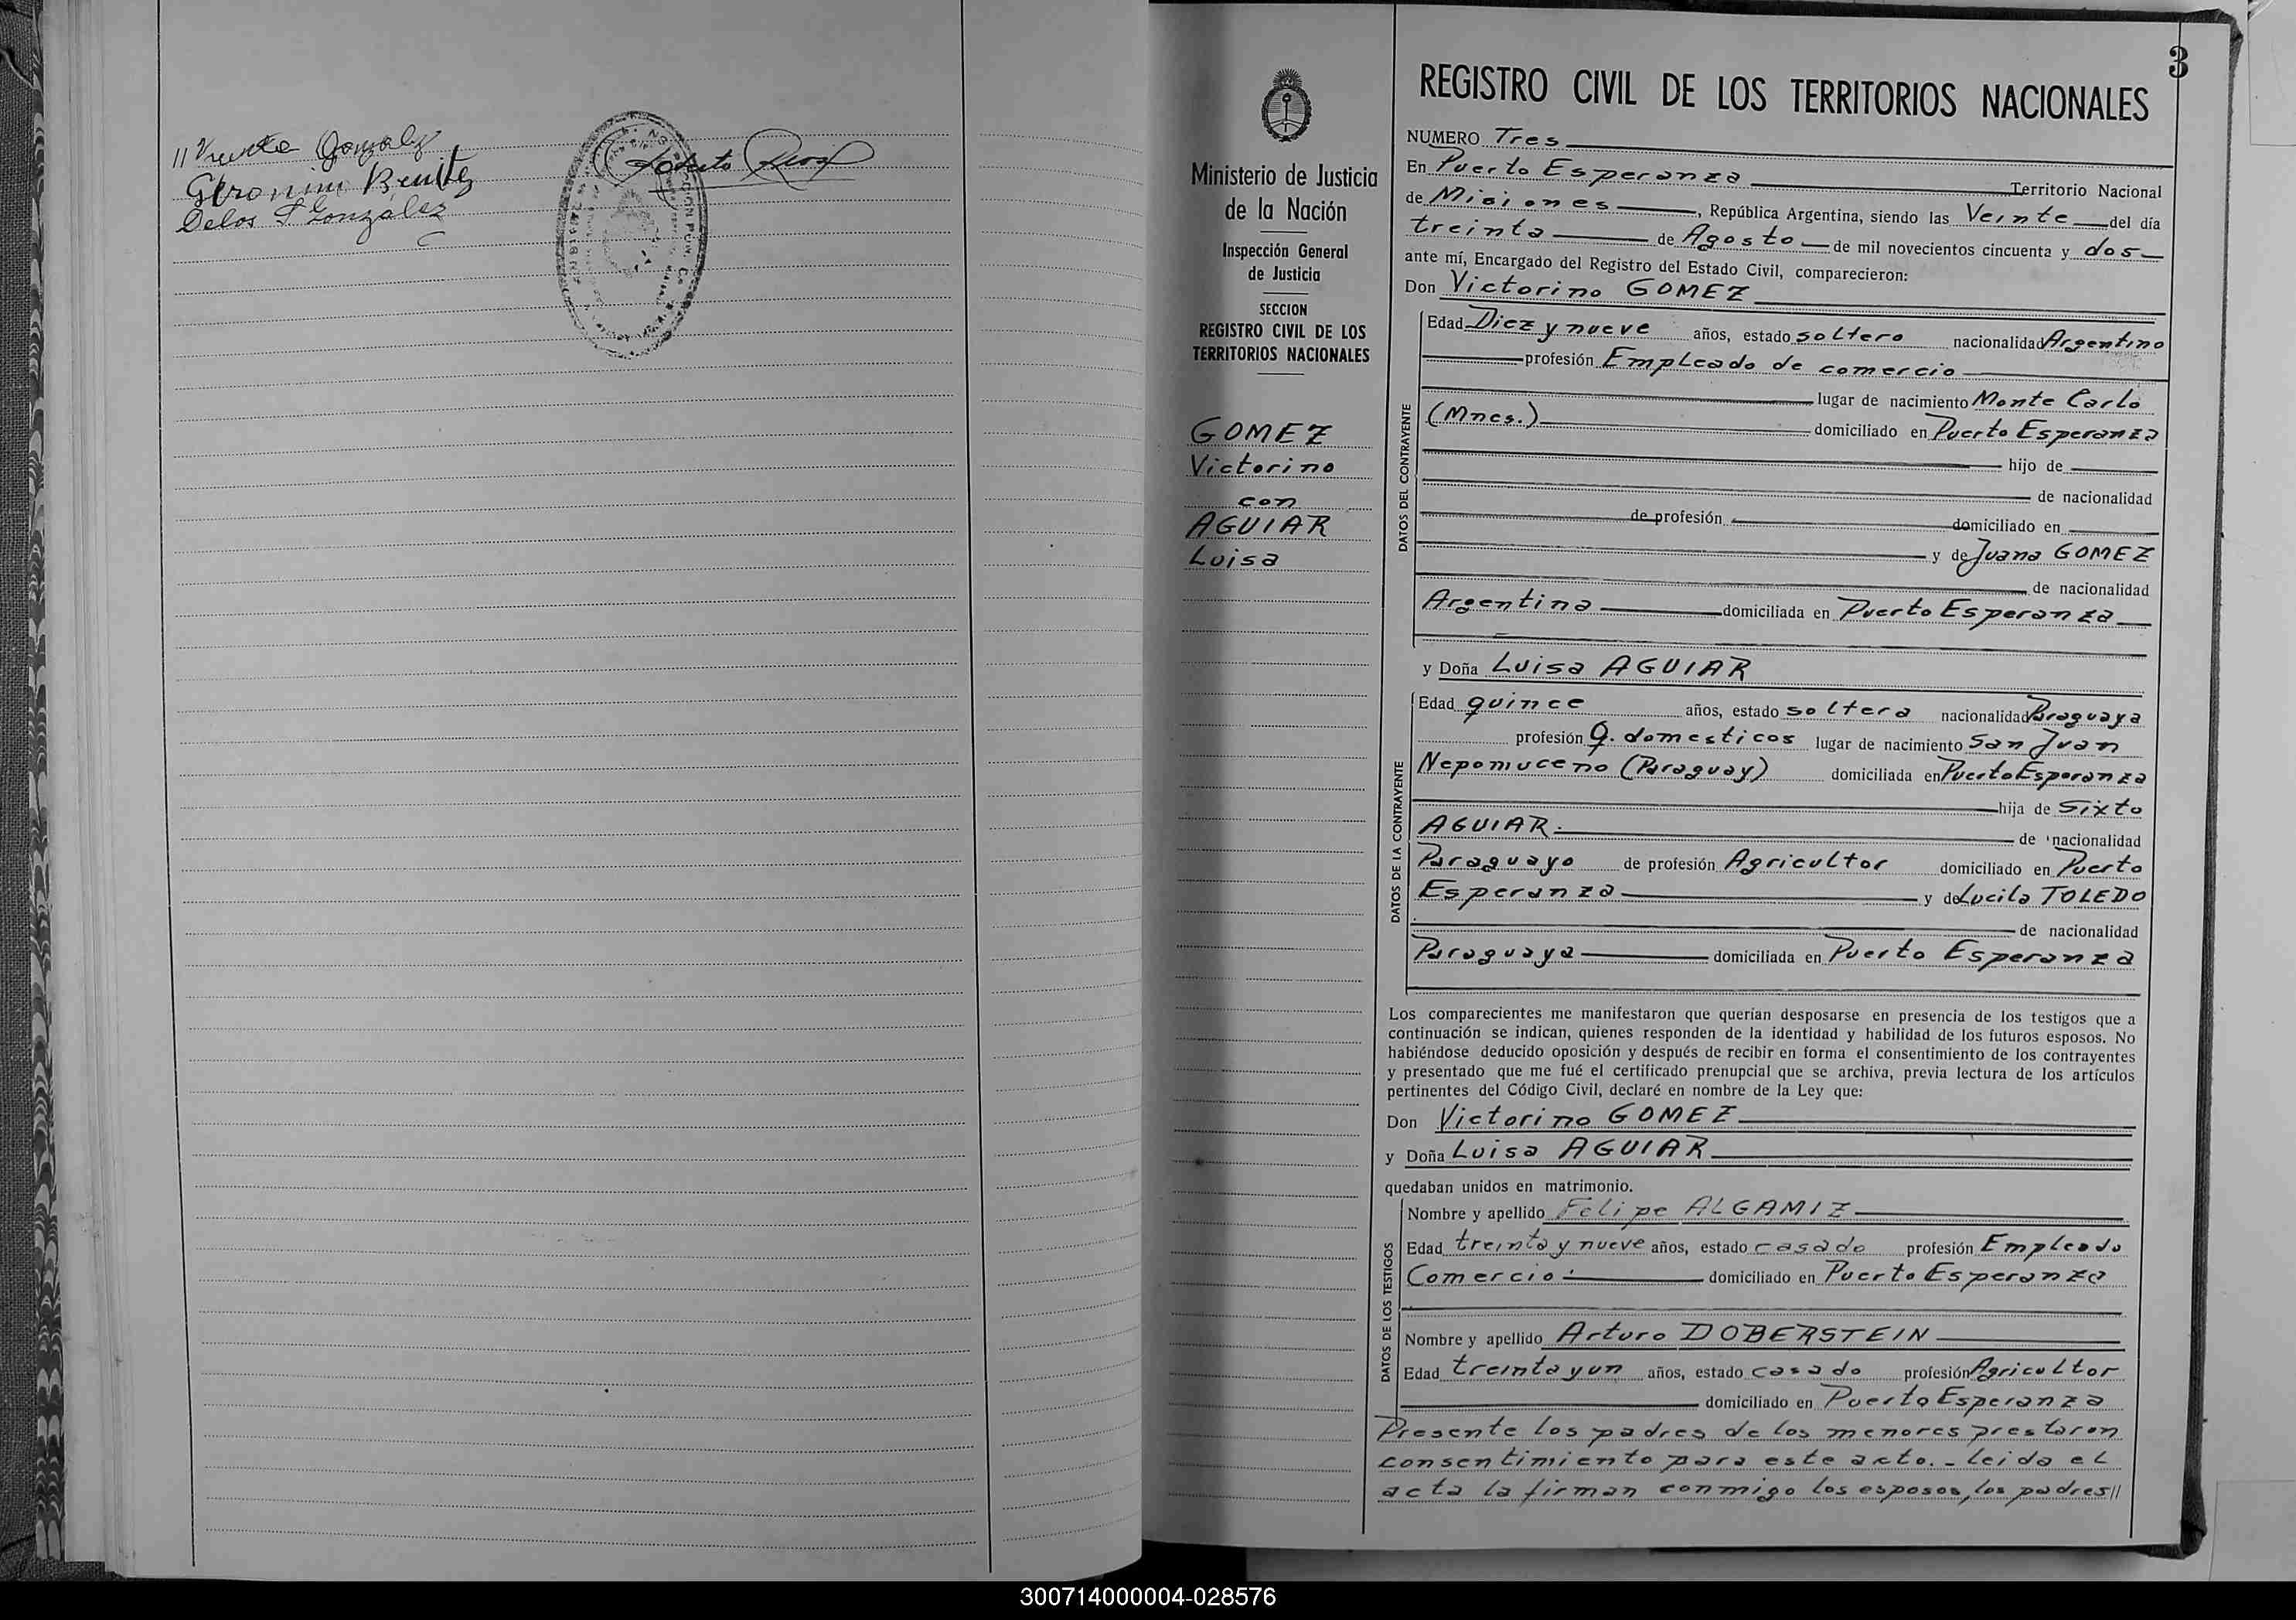 Geronimo Benitez
Delos S González
3
REGISTRO CIVIL DE LOS TERRITORIOS NACIONALES
Ministerio de Justicia
de la Nación
Inspección General
de Justicia
SECCION
REGISTRO CIVIL DE LOS
TERRITORIOS NACIONALES
GOMEZ
Victorino
con
AGUIAR
Luisa
NUMERO Tres
En Puerto Esperanza Territorio Nacional
de Misiones, República Argentina, siendo las Veinte del día
treinta de Agosto de mil novecientos cincuenta y dos
ante mí, Encargado del Registro del Estado Civil, comparecieron:
Don Victorino GOMEZ
DATOS DEL CONTRAYENTE
Edad Diez y nueve años, estado soltero nacionalidad Argentino
profesión Empleado de comercio
lugar de nacimiento Monte Carlo
(Mnes.) domiciliado en Puerto Esperanza
hijo de
de nacionalidad
de profesión domiciliado en
y de Juana GOMEZ
de nacionalidad
Argentina domiciliada en Puerto Esperanza
y Doña Luisa AGUIAR
DATOS DE LA CONTRAYENTE
Edad quince años, estado soltera nacionalidad Paraguaya
profesión Q. domesticos lugar de nacimiento San Juan
Nepomuceno (Paraguay) domiciliada en Puerto Esperanza
hija de Sixto
AGUIAR. de nacionalidad
Paraguayo de profesión Agricultor domiciliado en Puerto
Esperanza y de Lucila TOLEDO
de nacionalidad
Paraguaya domiciliada en Puerto Esperanza
Los comparecientes me manifestaron que querían desposarse en presencia de los testigos que a
continuación se indican, quienes responden de la identidad y habilidad de los futuros esposos. No
habiéndose deducido oposición y después de recibir en forma el consentimiento de los contrayentes
y presentado que me fué el certificado prenupcial que se archiva, previa lectura de los artículos
pertinentes del Código Civil, declaré en nombre de la Ley que:
Don Victorino GOMEZ
y Doña Luisa AGUIAR
quedaban unidos en matrimonio.
DATOS DE LOS TESTIGOS
Nombre y apellido Felipe ALGAMIZ
Edad treinta y nueve años, estado casado profesión Empleado
Comercio. domiciliado en Puerto Esperanza
Nombre y apellido Arturo DOBERSTEIN
Edad treinta y un años, estado casado profesión Agricultor
domiciliado en Puerto Esperanza
Presente los padres de los menores prestaron
consentimiento para este acto. - leida el
acta la firman conmigo los esposos, los padres//
300714000004-028576